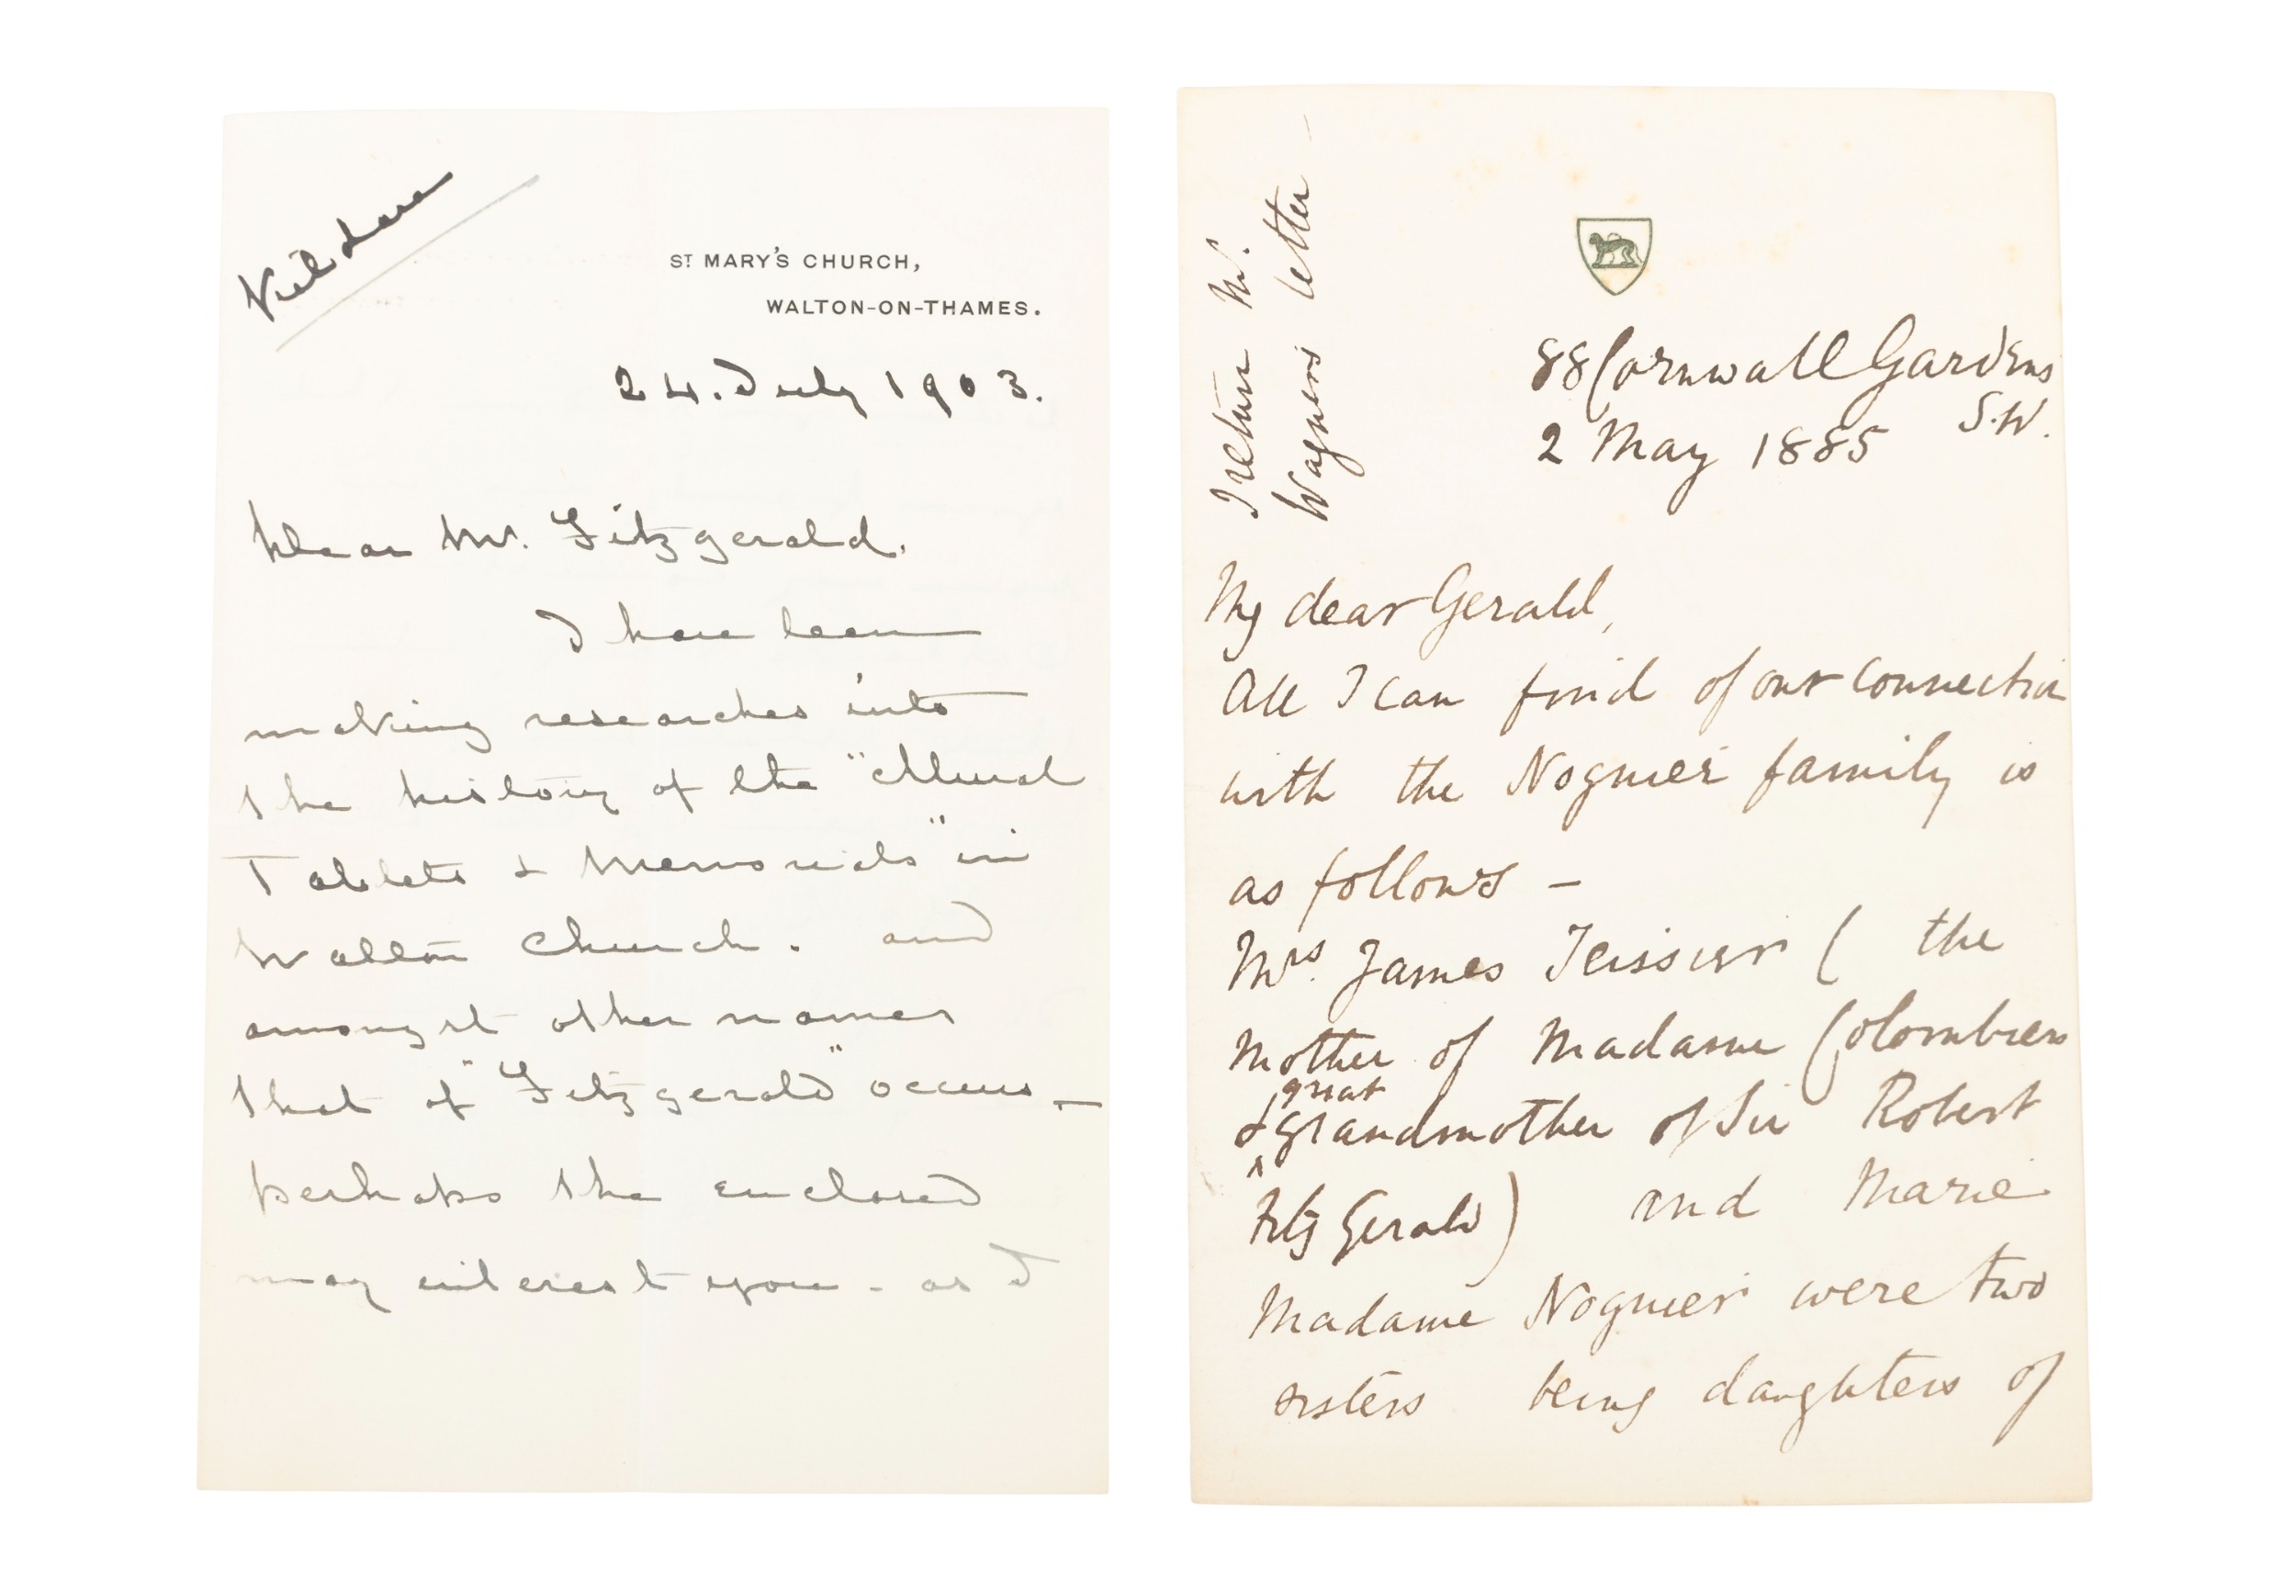 Kildare
ST MARY'S CHURCH,
WALTON-ON-THAMES.
24. July 1903.
Dear Mr. Fitzgerald.
I have been
making researches into
the history of the "Mural
Tablets & Memorials" in
Walton Church. and
amongst other names
that of "Fitzgerald" occurs -
perhaps the enclosed
may interest you - as I
I return Mr.
Wagner's letter -
88 Cornwall Gardens
S.W.
2 May 1885
My dear Gerald,
All I can find of our connection
with the Noguier family is
as follows -
Mrs. James Teissier ( the
mother of Madame Colombies
& great grandmother of Sir Robert
FitzGerald) and Marie
Madame Noguier were two
sisters being daughters of